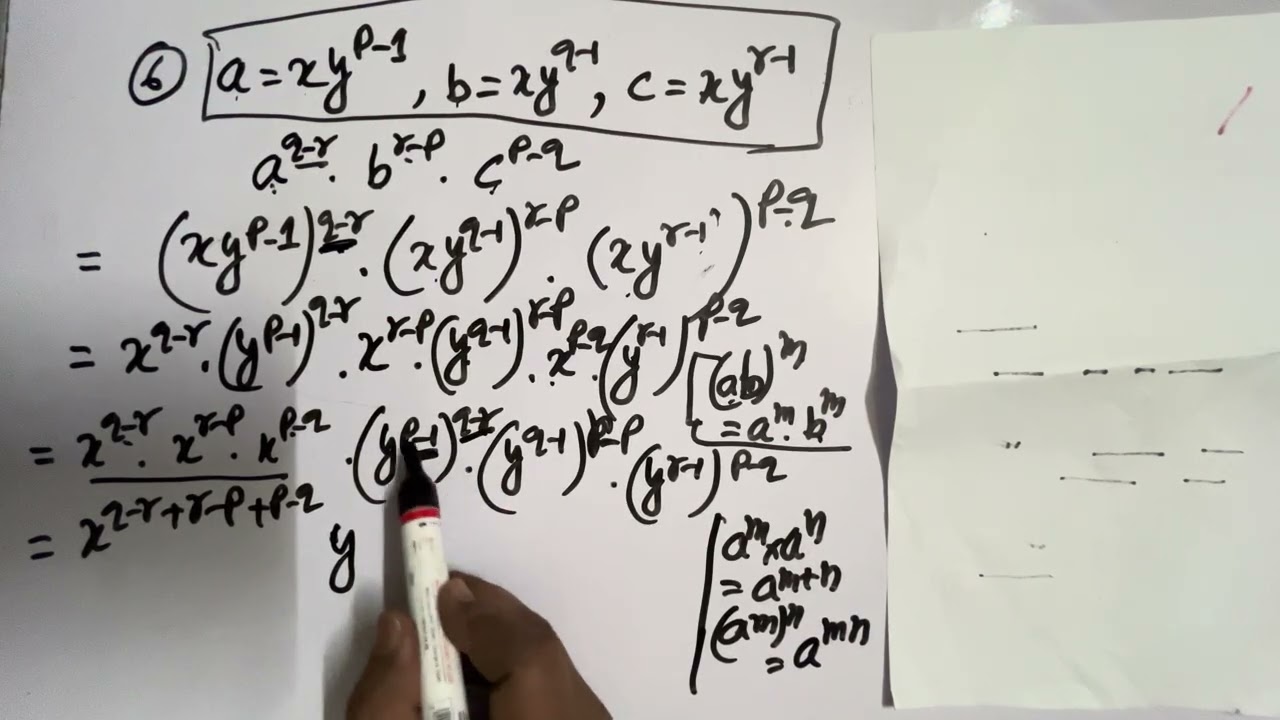 ⑥ a = xy^{p-1}, b = xy^{q-1}, c = xy^{r-1}
a^{q-r} . b^{r-p} . c^{p-q}
= (xy^{p-1})^{q-r} . (xy^{q-1})^{r-p} . (xy^{r-1})^{p-q}
= x^{q-r} . (y^{p-1})^{q-r} . x^{r-p} . (y^{q-1})^{r-p} . x^{p-q} . (y^{r-1})^{p-q}
(ab)^m
= a^m . b^m
= x^{q-r} . x^{r-p} . x^{p-q} . (y^{p-1})^{q-r} . (y^{q-1})^{r-p} . (y^{r-1})^{p-q}
= x^{q-r+r-p+p-q} y
a^m × a^n
= a^{m+n}
(a^m)^n
= a^{mn}